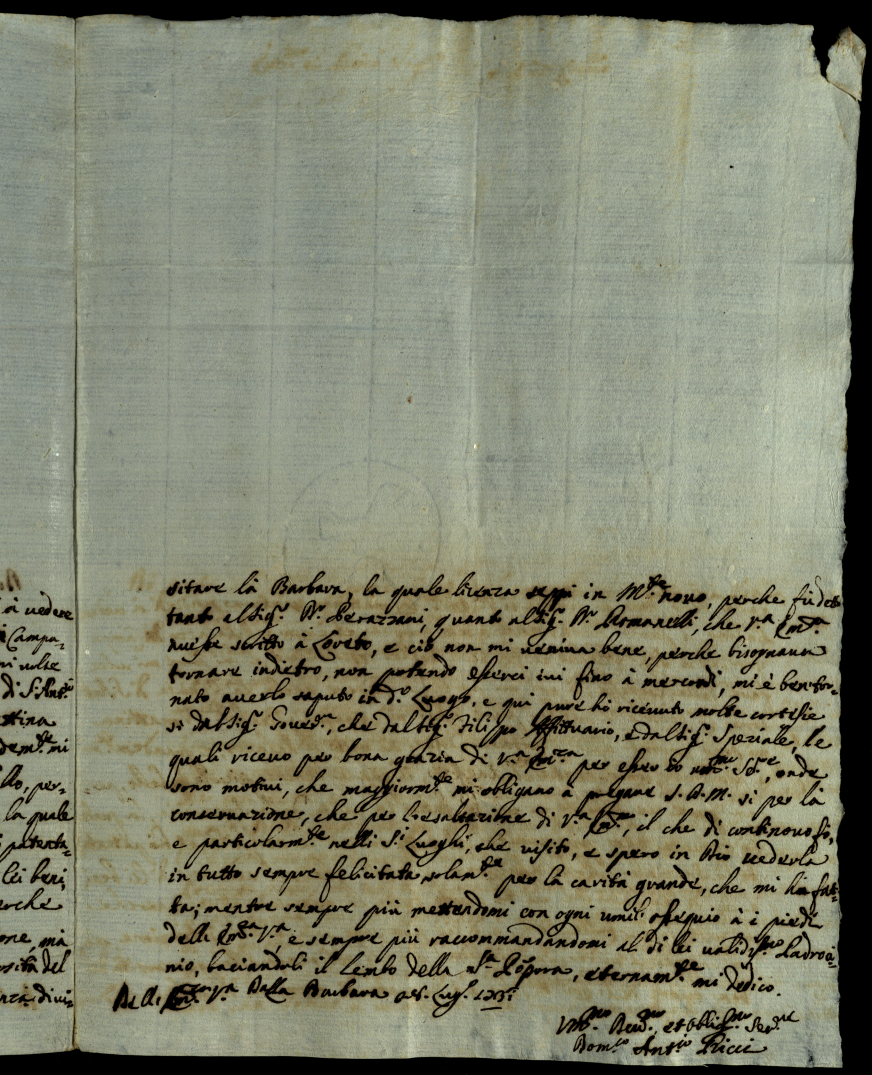 à vedere
Campa-
mi volse
di S. Ant.º
attina
dem.te mi
llo, per-
la quale
patenta-
lei beni,
erche
one, mà
sità del
nza divi-
sitare là Barbara, la quale licenza seppi in M.te novo, perche fù detto
tanto al Sig.r D.r Perazzani, quanto al Sig.r D.r Romanelli, che V.a Em.za
avesse scritto à Loreto, e ciò non mi veniva bene, perche bisognava
tornare indietro, non potendo esserci ivi fino à mercordì, mi è ben tor-
nato averlo saputo in d.º Luogo, e qui pure hò ricevuto molte cortesie
sì dal Sig.r Gover.re, che dal Sig.r Filippo Affittuario, e dal Sig.r Speziale, le
quali ricevo per bona grazia di V.a Em.za per esser io Ser.e, onde
sono motivi, che maggiorm.te mi obligano à pregare S. D. M. sì per là
conservazione, che per l'esaltazione di V.a Em.za, il che di continovo fò,
e particolarm.te nelli S.ti Luoghi, che visito, e spero in Dio vederla
in tutto sempre felicitata solam.te per la carità grande, che mi hà fat-
ta; mentre sempre più mettendomi con ogni umil.º ossequio à i piedi
dell' Em.za V.a, e sempre più raccommandandomi al di lei validiss.mo Padroci-
nio, baciandoli il Lembo della Porpora, eternam.te mi dedico.
Dell' Em.za V.a Dalla Barbara Lug.
Um.mo Dev.mo, et Oblig.mo Ser.re
Dom.co Ant.io Ricci